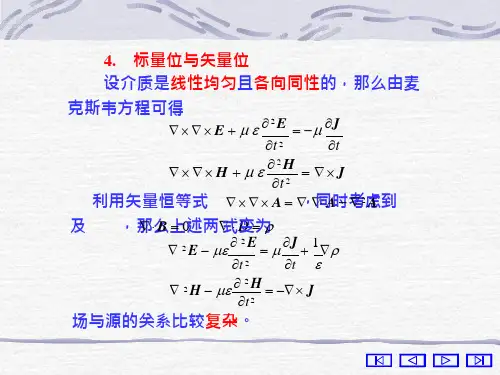 4. 标量位与矢量位
设介质是线性均匀且各向同性的，那么由麦
克斯韦方程可得
∇×∇×E + με ∂²E/∂t² = −μ ∂J/∂t
∇×∇×H + με ∂²H/∂t² = ∇×J
利用矢量恒等式 ∇×∇×A = ∇∇ 同时考虑到
及 ，那么上述两式变为
∇²E − με ∂²E/∂t² = μ ∂J/∂t + 1/ε ∇ρ
∇²H − με ∂²H/∂t² = −∇×J
场与源的关系比较复杂。